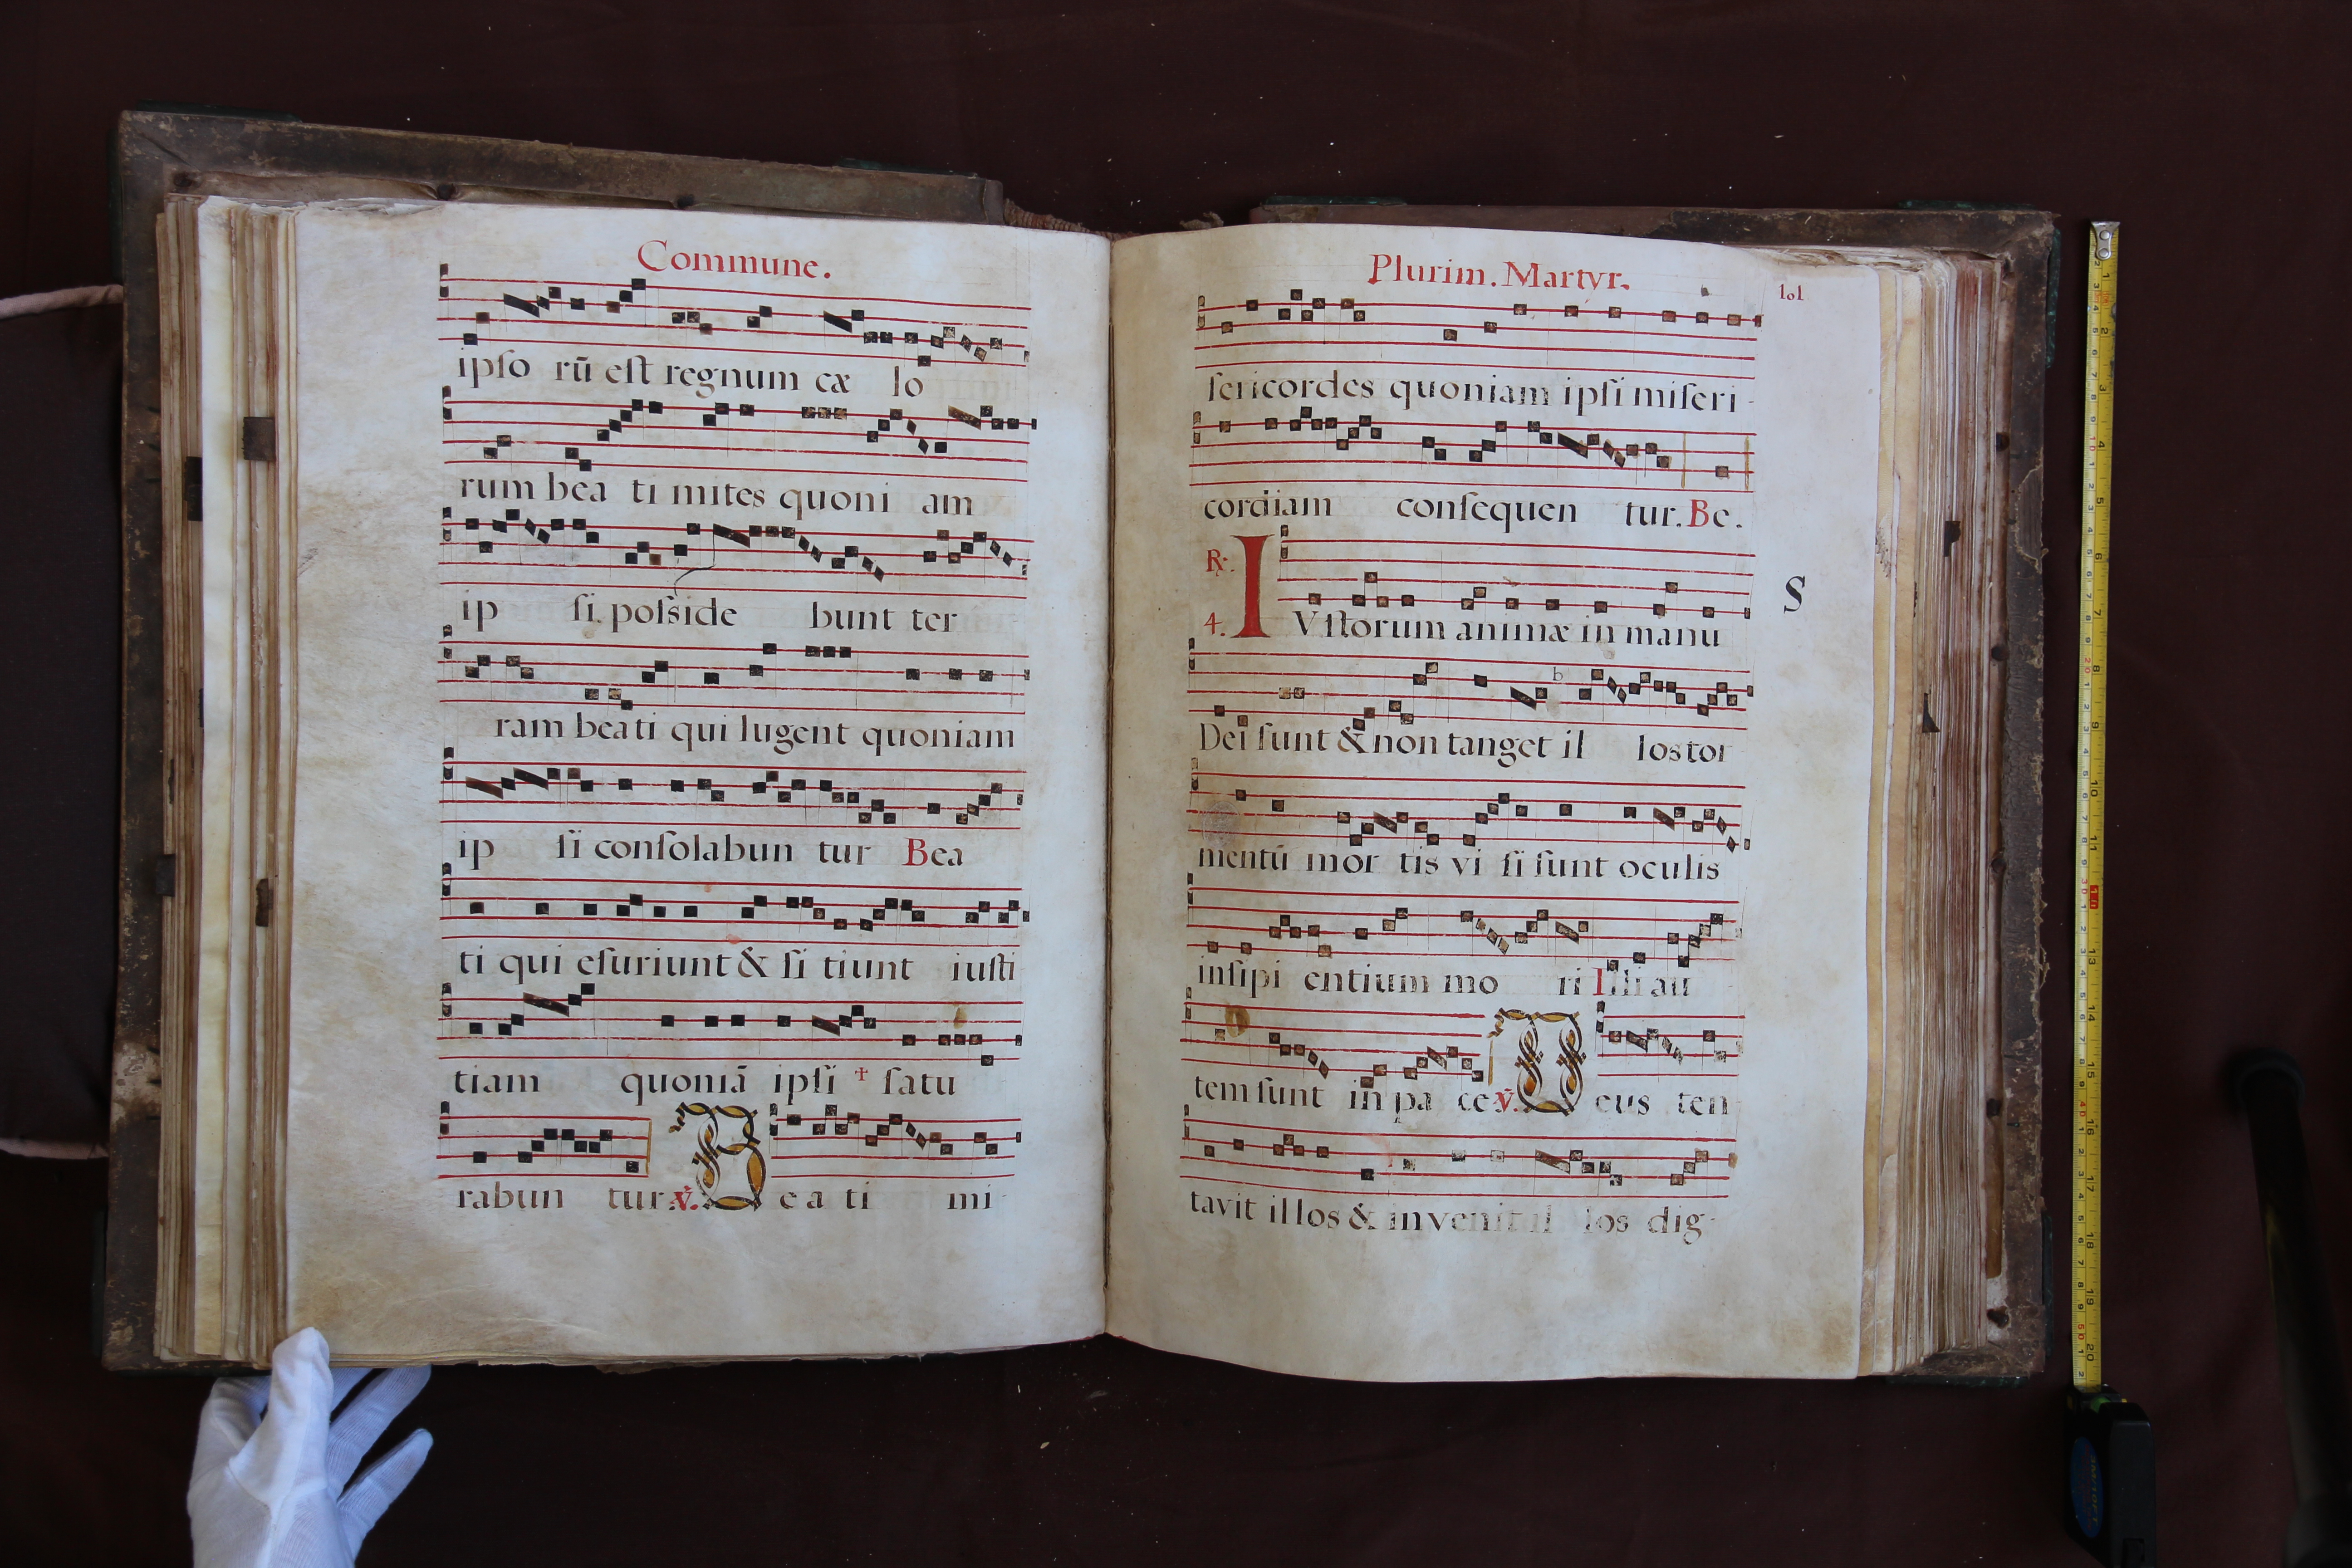 Commune.
ipſo rū eſt regnum cæ lo
rum bea ti mites quoni am
ip ſi poſside bunt ter
ram beati qui lugent quoniam
ip ſi conſolabun tur Bea
ti qui eſuriunt & ſi tiunt iuſti
tiam quoniā ipſi † ſatu
rabun tur. ℣. B e a ti mi-
Plurim. Martyr.
101
ſericordes quoniam ipſi miſeri-
cordiam conſequen tur. Be.
℟. 4. IVſtorum animæ in manu
S
b
Dei ſunt & non tanget il los tor
mentū mor tis vi ſi ſunt oculis
inſipi entium mo ri Illi au
tem ſunt in pa ce ℣. D eus ten
tavit illos & invenit il los dig-